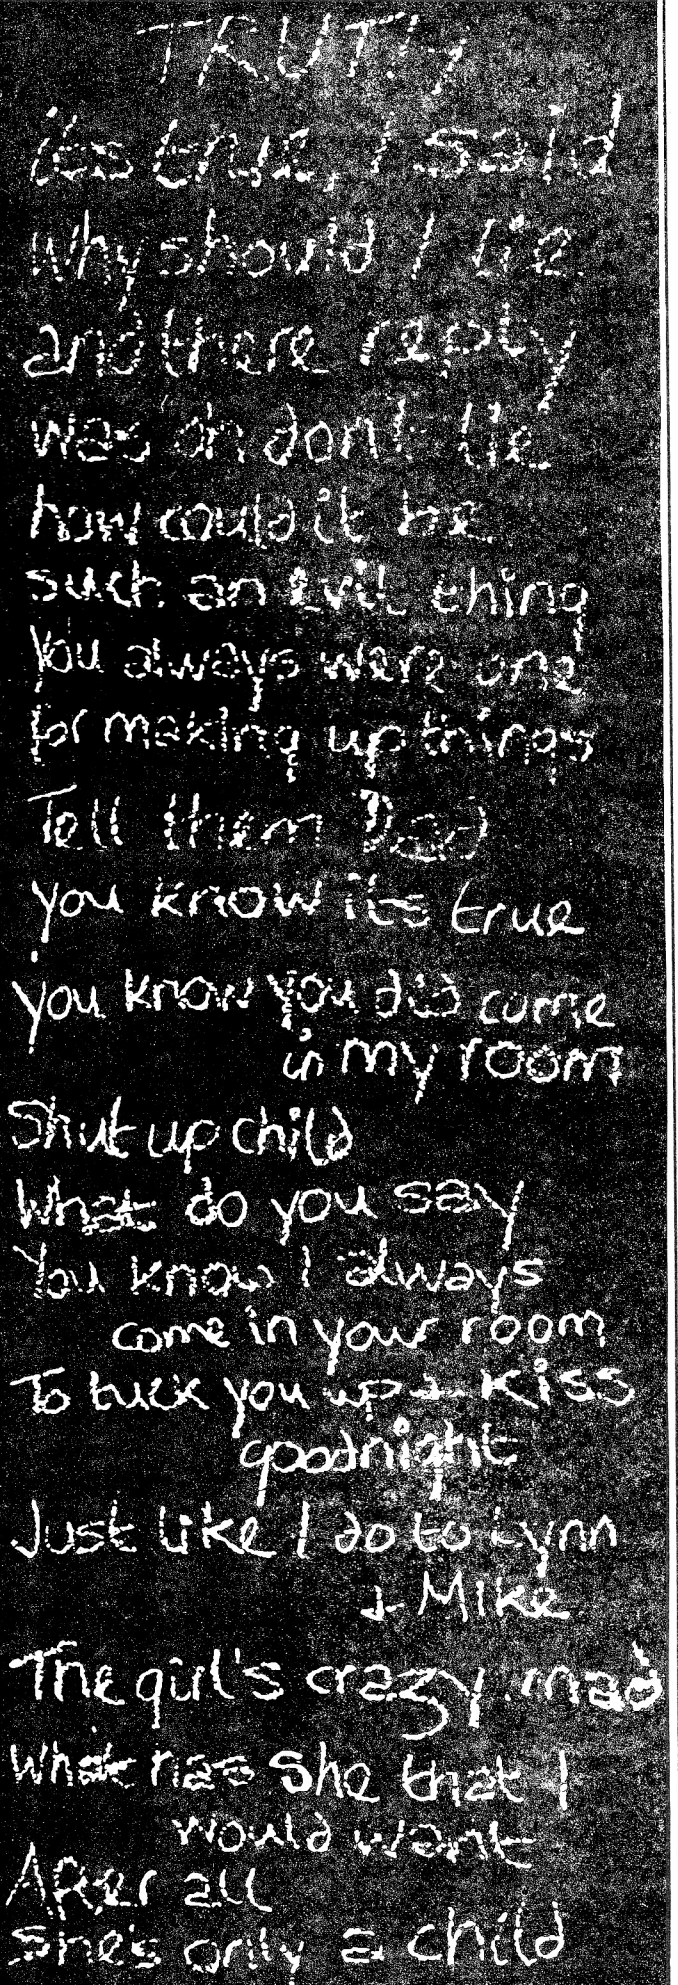 TRUTH
its true, I said
why should I lie.
and there reply
was oh don't lie
how could it be
such an evil thing
You always were one
for making up things
Tell them Dad
you know its true
you know you did come
in my room
Shut up child
What do you say
You know I always
come in your room
To tuck you up & kiss
goodnight
Just like I do to Lynn
& Mike
The girl's crazy, mad
What has she that I
would want
After all
she's only a child